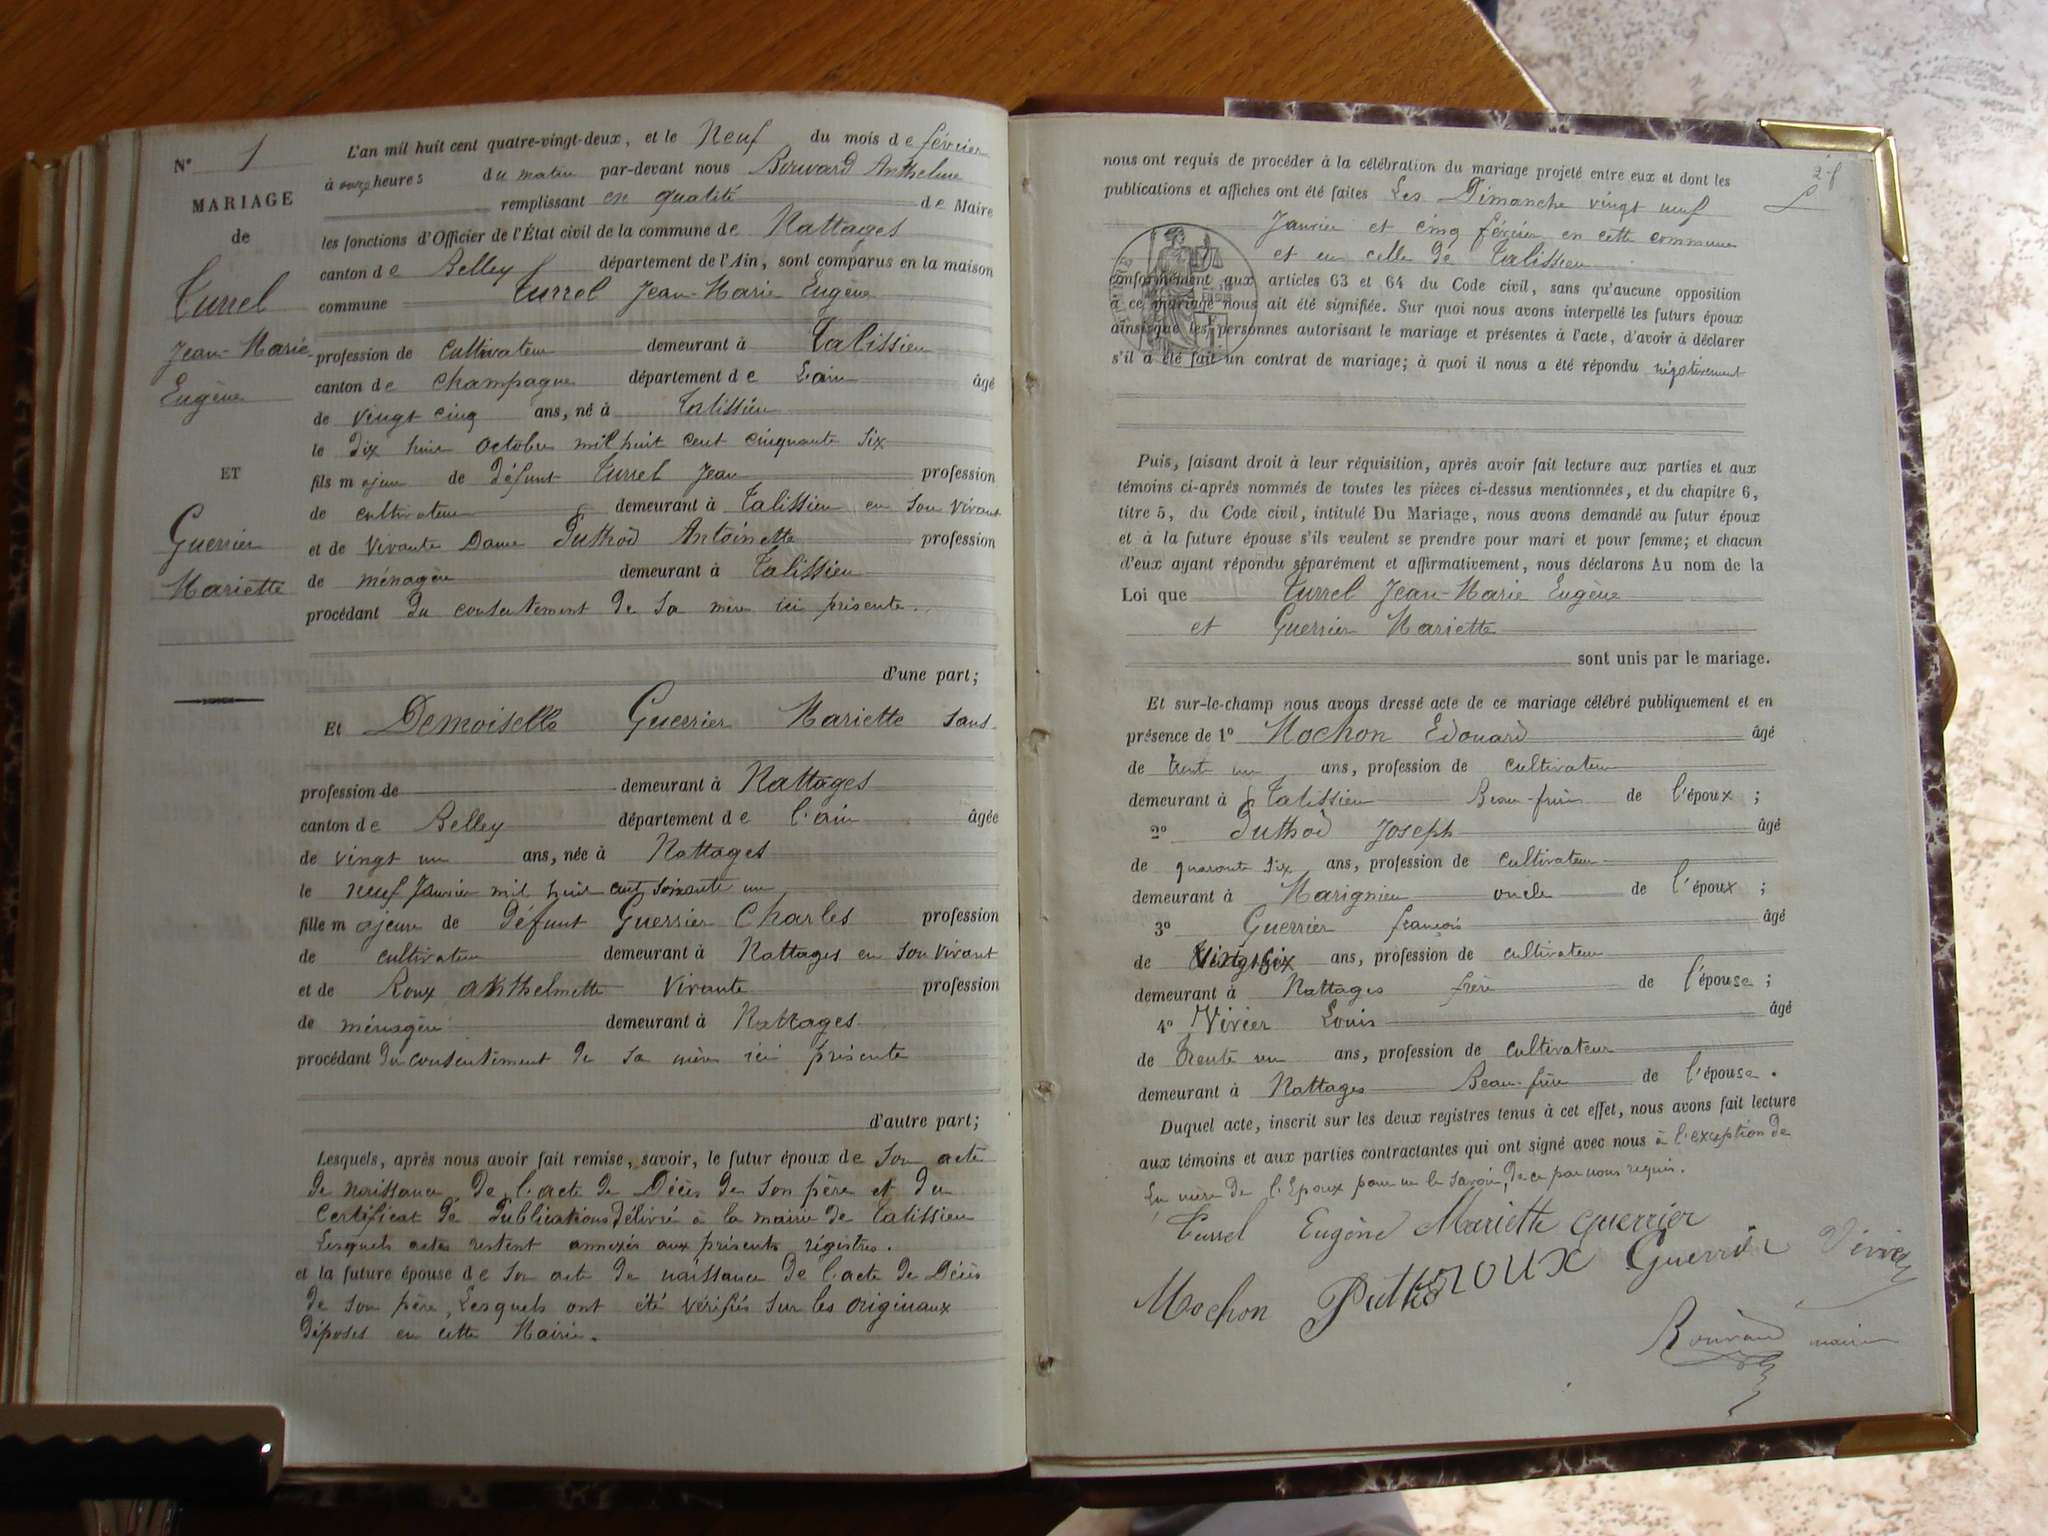 N° 1
MARIAGE
de
Turrel
Jean-Marie
Eugène
ET
Guerrier
Mariette
L'an mil huit cent quatre-vingt-deux, et le Neuf du mois de février
à onze heures du matin par-devant nous Bouvard Anthelme
remplissant en qualité de Maire
les fonctions d'Officier de l'État civil de la commune de Nattages
canton de Belley département de l'Ain, sont comparus en la maison
commune Turrel Jean-Marie Eugène
profession de cultivateur demeurant à Talissieu
canton de Champagne département de L'ain âgé
de vingt cinq ans, né à Talissieu
le dix huit octobre mil huit cent cinquante six
fils majeur de défunt Turrel Jean profession
de cultivateur demeurant à Talissieu en son vivant
et de vivante Dame Puthod Antoinette profession
de ménagère demeurant à Talissieu
procédant du consentement de sa mère ici présente.
d'une part;
Et Demoiselle Guerrier Mariette sans
profession de demeurant à Nattages
canton de Belley département de l'ain âgée
de vingt un ans, née à Nattages
le neuf Janvier mil huit cent soixante un
fille majeure de défunt Guerrier Charles profession
de cultivateur demeurant à Nattages en son vivant
et de Roux anthelmette Vivante profession
de ménagère demeurant à Nattages
procédant du consentement de sa mère ici présente
d'autre part;
Lesquels, après nous avoir fait remise, savoir, le futur époux de son acte
de naissance de l'acte de Décès de son père et du
Certificat de Publications délivré à la mairie de Talissieu
Lesquels actes restent annexés aux présents régistres.
et la future épouse de son acte de naissance de l'acte de Décès
de son père, Lesquels ont été vérifiés sur les originaux
déposés en cette Mairie.
nous ont requis de procéder à la célébration du mariage projeté entre eux et dont les
publications et affiches ont été faites Les Dimanche vingt neuf
Janvier et cinq février en cette commune
et en celle de Talissieu
conformément aux articles 63 et 64 du Code civil, sans qu'aucune opposition
à ce mariage nous ait été signifiée. Sur quoi nous avons interpellé les futurs époux
ainsi que les personnes autorisant le mariage et présentes à l'acte, d'avoir à déclarer
s'il a été fait un contrat de mariage; à quoi il nous a été répondu négativement
Puis, faisant droit à leur réquisition, après avoir fait lecture aux parties et aux
témoins ci-après nommés de toutes les pièces ci-dessus mentionnées, et du chapitre 6,
titre 5, du Code civil, intitulé Du Mariage, nous avons demandé au futur époux
et à la future épouse s'ils veulent se prendre pour mari et pour femme; et chacun
d'eux ayant répondu séparément et affirmativement, nous déclarons Au nom de la
Loi que Turrel Jean-Marie Eugène
et Guerrier Mariette
sont unis par le mariage.
Et sur-le-champ nous avons dressé acte de ce mariage célébré publiquement et en
présence de 1° Mochon Edouard âgé
de trente un ans, profession de cultivateur
demeurant à Talissieu Beau-frère de l'époux ;
2° Puthod Joseph âgé
de quarante six ans, profession de cultivateur
demeurant à Marignieu oncle de l'époux ;
3° Guerrier françois âgé
de Vingt six ans, profession de cultivateur
demeurant à Nattages frère de l'épouse ;
4° Vivier Louis âgé
de trente un ans, profession de cultivateur
demeurant à Nattages Beau-frère de l'épouse.
Duquel acte, inscrit sur les deux registres tenus à cet effet, nous avons fait lecture
aux témoins et aux parties contractantes qui ont signé avec nous à l'exception de
La mère de l'Epoux pour ne le savoir, de ce par nous requis.
Turrel Eugène Mariette guerrier
Mochon Puthod roux Guerrier Vivier
Bouvard maire